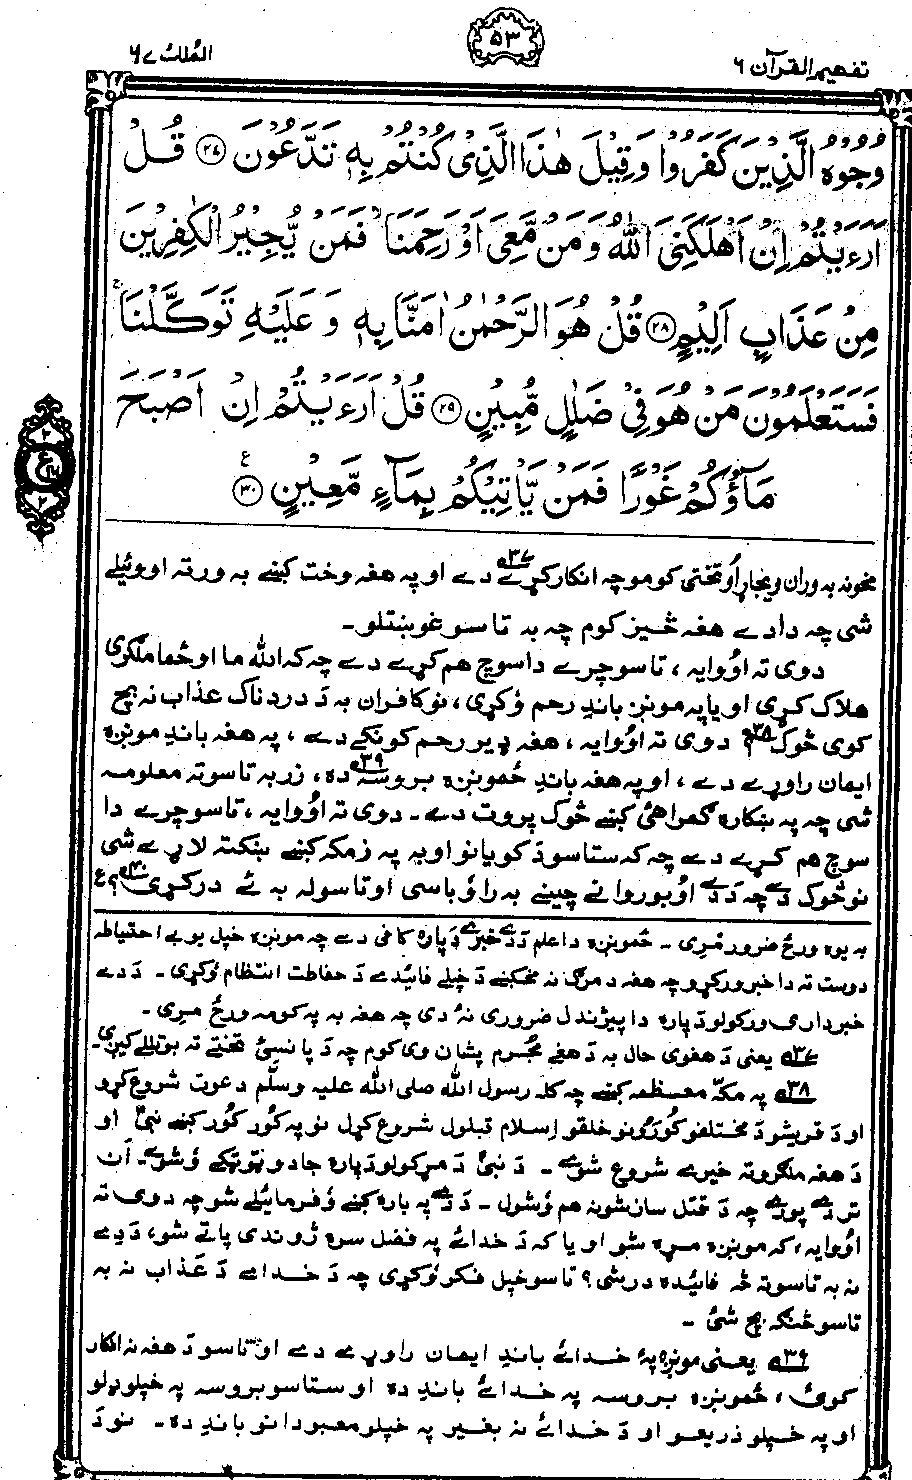 تفهیم القرآن ۶
۵۳
الملک ۶۷
وُجُوْهُ الَّذِیْنَ کَفَرُوْا وَقِیْلَ هٰذَا الَّذِیْ کُنْتُمْ بِهٖ تَدَّعُوْنَ ﴿۲۷﴾ قُلْ
اَرَءَیْتُمْ اِنْ اَهْلَکَنِیَ اللّٰهُ وَمَنْ مَّعِیَ اَوْ رَحِمَنَا ۙ فَمَنْ یُّجِیْرُ الْکٰفِرِیْنَ
مِنْ عَذَابٍ اَلِیْمٍ ﴿۲۸﴾ قُلْ هُوَ الرَّحْمٰنُ اٰمَنَّا بِهٖ وَ عَلَیْهِ تَوَکَّلْنَا ۚ
فَسَتَعْلَمُوْنَ مَنْ هُوَ فِیْ ضَلٰلٍ مُّبِیْنٍ ﴿۲۹﴾ قُلْ اَرَءَیْتُمْ اِنْ اَصْبَحَ
مَآؤُکُمْ غَوْرًا فَمَنْ یَّاْتِیْکُمْ بِمَآءٍ مَّعِیْنٍ ﴿۳۰﴾ ع
مخونه به وران ویجاړ اؤ تختی کوم چه انکار کړے ۳۷ دے او په هغه وخت کښے به ورته اووئیلے
شی چه دا دے هغه څیز کوم چه به تاسو غوښتلو۔
دوی ته اؤوایه، تاسو چرے دا سوچ هم کړے دے چه که الله ما او ځما ملګری
هلاک کړی او یا په مونږ باندِ رحم وُکړی، نو کافران به دَ دردناک عذاب نه بچ
کوی څوک ۳۸؟ دوی ته اؤوایه، هغه ډیر رحم کونکے دے، په هغه باندِ مونږه
ایمان راوړے دے، او په هغه باندِ ځمونږه بروسه ۳۹ ده، زر به تاسو ته معلومه
شی چه په ښکاره ګمراهئ کښے څوک پروت دے۔ دوی ته اؤوایه، تاسو چرے دا
سوچ هم کړے دے چه که ستاسو دَ کویانو اوبه په زمکه کښے ښکته لاړے شی
نو څوک دے چه دَ دے اؤبو روانے چینے به راؤباسی او تاسو له به ئے درکړی ۴۰؟ ع
به یوه ورځ ضرور مُری۔ ځمونږه دا علم دَ دے خبرے دَ پاره کافی دے چه مونږه خپل یو بے احتیاطه
دوست ته دا خبر ورکړو چه هغه د مرګ نه مخکښے دَ خپلے فائدے دَ حفاظت انتظام وُکړی۔ دَ دے
خبرداری ورکولو دَ پاره دا پیژندل ضروری نهٔ دی چه هغه به په کومه ورځ مری۔
۳۷ یعنی دَ هغوی حال به دَ هغے مجُرم پشان وی کوم چه دَ پانسئ تختے ته بوتللے کیږی۔
۳۸ په مکّه معظمه کښے چه کله رسول الله صلی الله علیه وسلّم دعوت شروع کړو
او دَ قریشو دَ مختلفو کورنو خلقو اسلام قبلول شروع کړل نو په کور کور کښے نبیؐ او
دَ هغه ملګرو ته خیرے شروع شوے۔ دَ نبیؐ دَ مړ کولو دَ پاره جادو ټوټکے وُشوے۔ اَن
تر دے پورے چه دَ قتل سازشونه هم وُشول۔ دَ دے په باره کښے وُفرمائیلے شو چه دوی ته
اؤوایه، که مونږه مړه شو او یا که دَ خدائے په فضل سره ژوندی پاتے شو، دَ دِے
نه به تاسو ته څه فائیده دررشی؟ تاسو خپل فکر وُکړی چه دَ خدائے دَ عذاب نه به
تاسو څنګه بچ شئ۔
۳۹ یعنی مونږه په خدائے باندِ ایمان راوړے دے او تاسو دَ هغه نه انکار
کوئ، ځمونږه بروسه په خدائے باندِ ده او ستاسو بروسه په خپلو ډلو
او په خپلو ذریعو او دَ خدائے نه بغیر په خپلو معبودانو باندِ ده۔ نو دَ